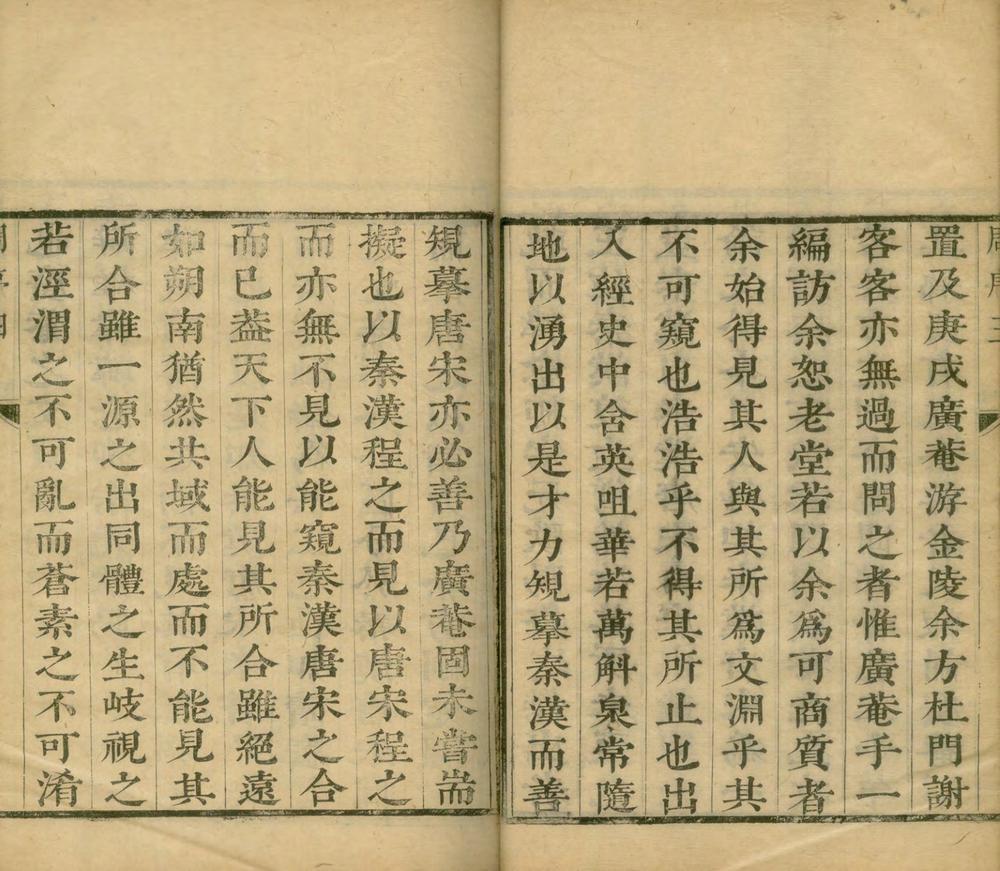 置及庚戌廣菴游金陵余方杜門謝
客客亦無過而問之者惟廣菴手一
編訪余恕老堂若以余爲可商質者
余始得見其人與其所爲文淵乎其
不可窺也浩浩乎不得其所止也出
入經史中含英咀華若萬斛泉常隨
地以湧出以是才力䂓摹秦漢而善
䂓摹唐宋亦必善乃廣菴固未嘗耑
擬也以秦漢程之而見以唐宋程之
而亦無不見以能窺秦漢唐宋之合
而已葢天下人能見其所合雖絕遠
如朔南猶然共域而處而不能見其
所合雖一源之出同體之生岐視之
若涇渭之不可亂而蒼素之不可淆